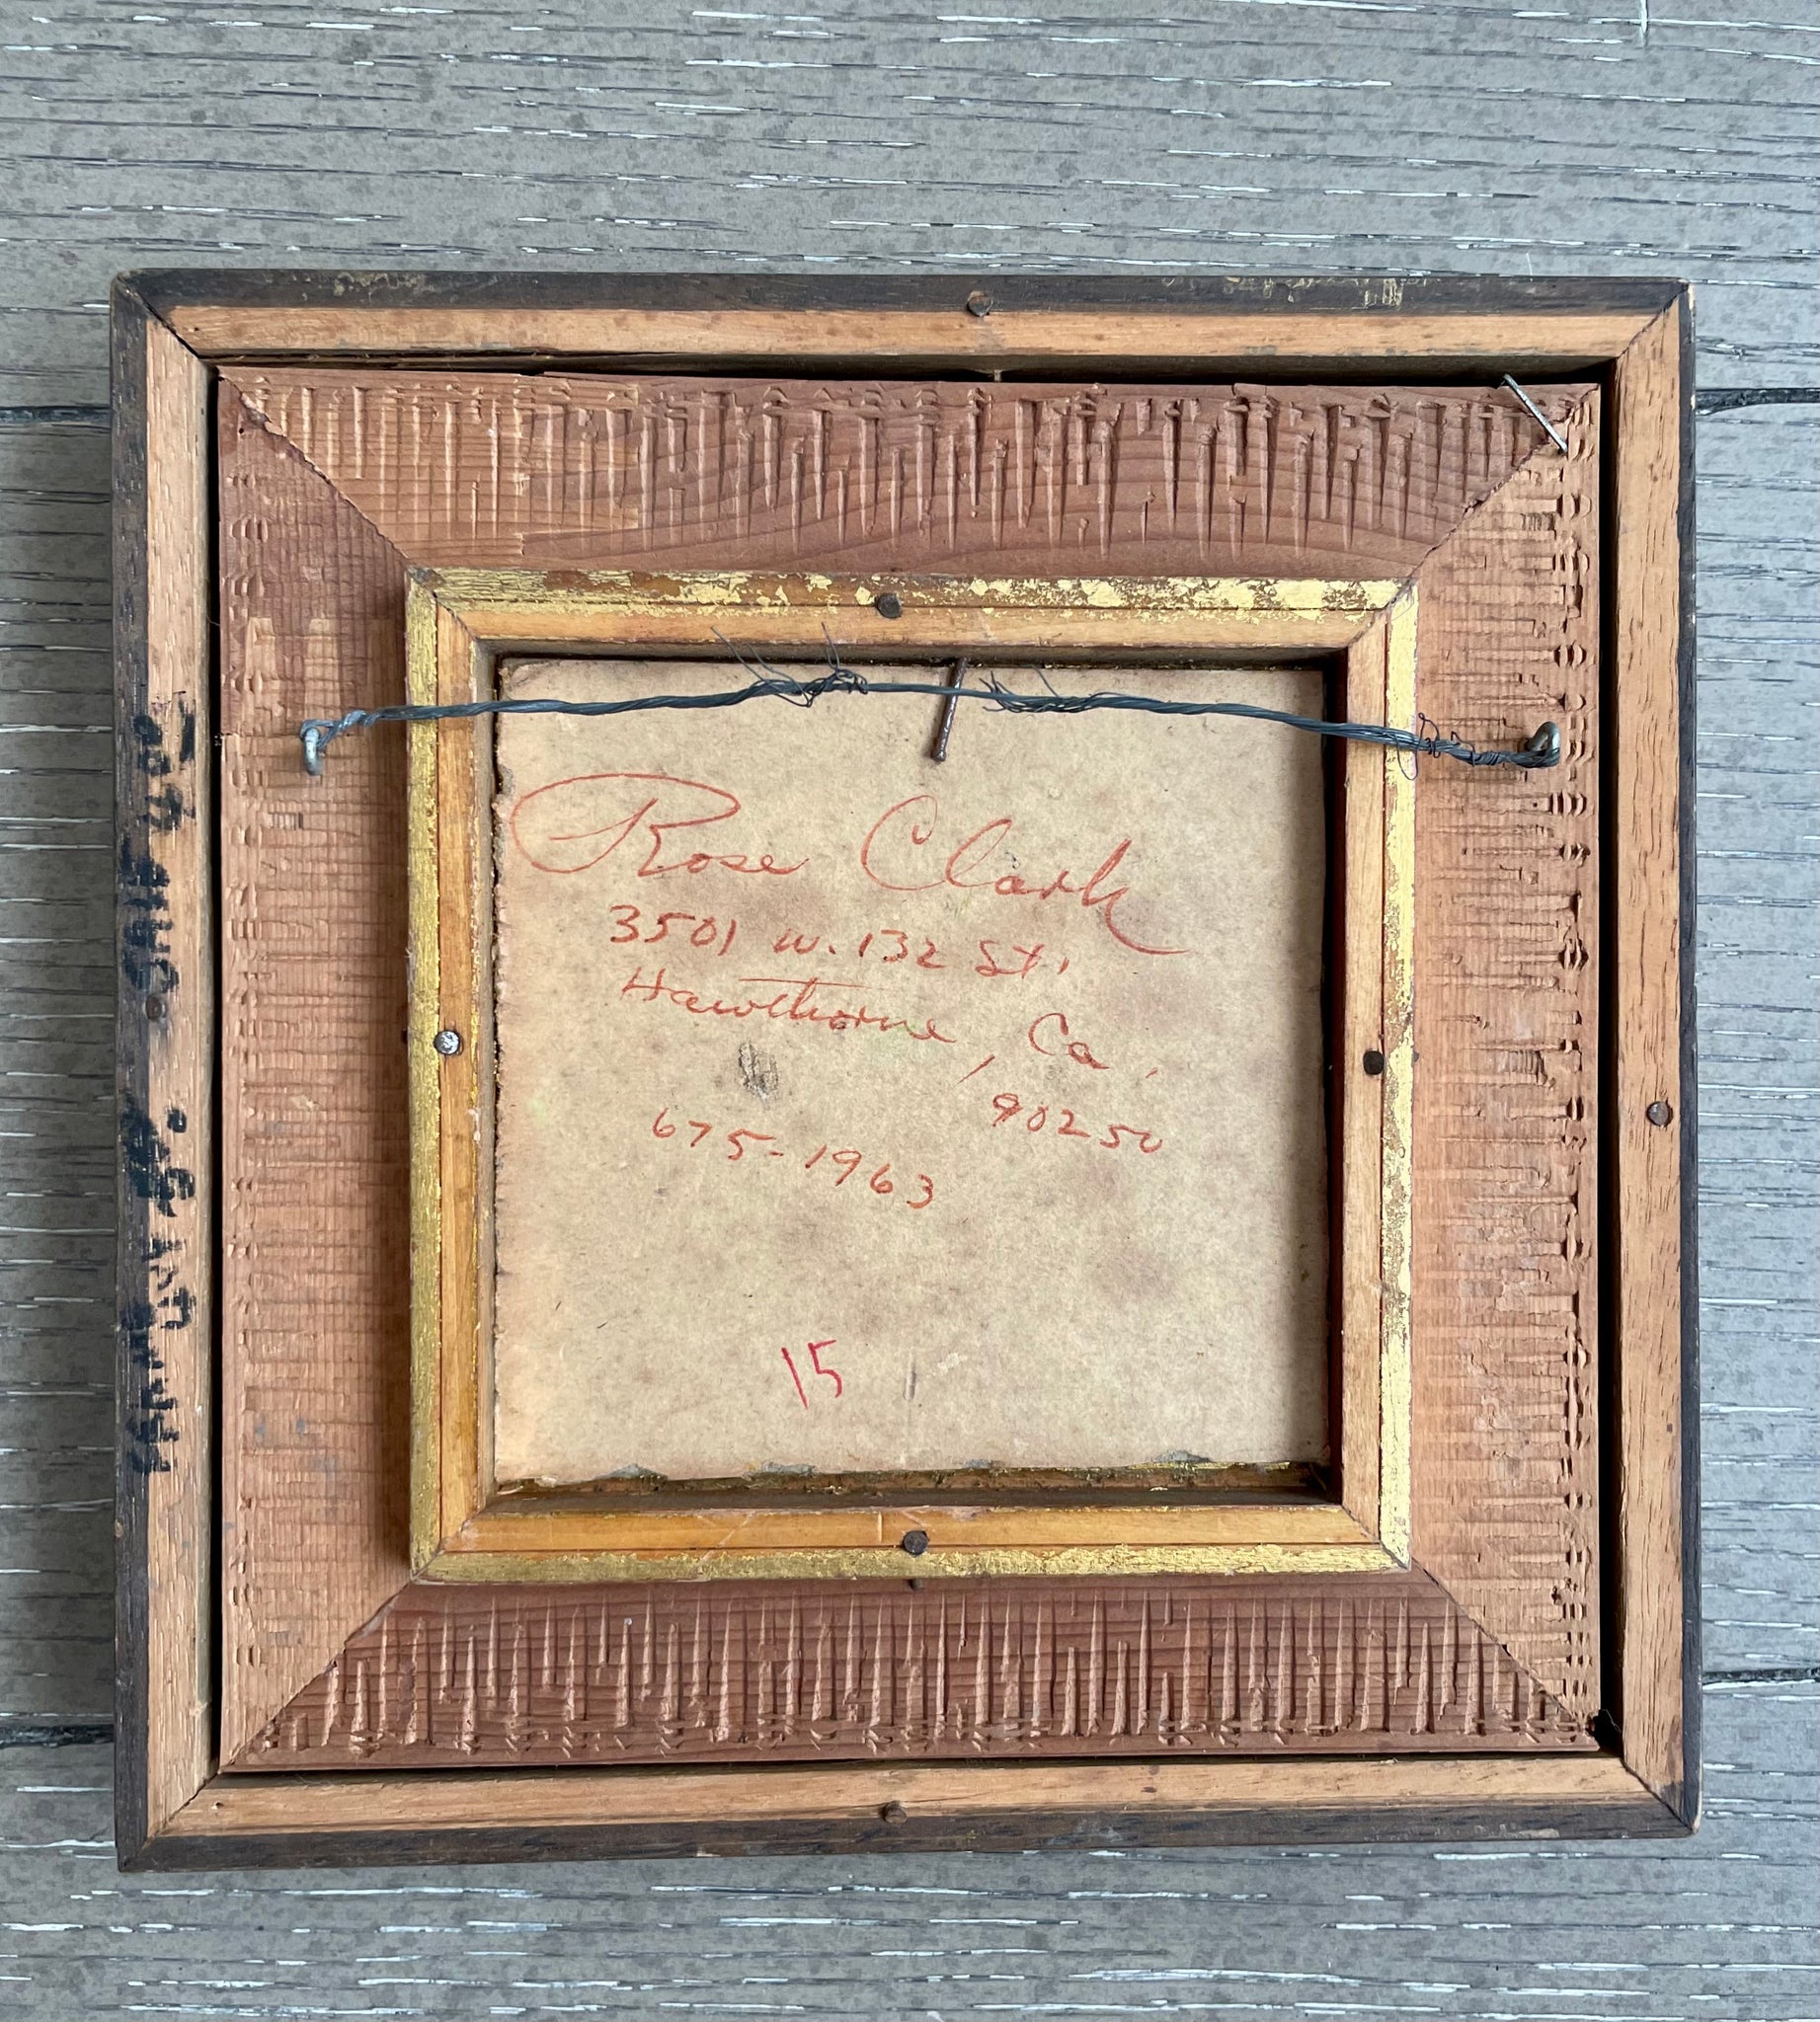 Rose Clark
3501 W. 132 St.
Hawthorne, Ca.
90250
675-1963
15